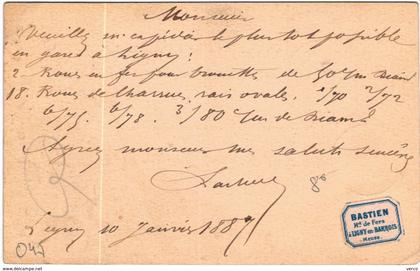 Monsieur
Veuillez m'expédier le plus tôt possible
en gare à Ligny :
2 Roues en fer pour brouettes de 50 c/m Diam
18. Roues de charrues, rais ovales. 2/70 2/72
6/75. 6/78. 3/80 c/m de Diam
Agréez monsieur mes saluts sincères
8°
Ligny 10 Janvier 1887
BASTIEN
Md de Fers
à LIGNY en BARROIS
Meuse.
045